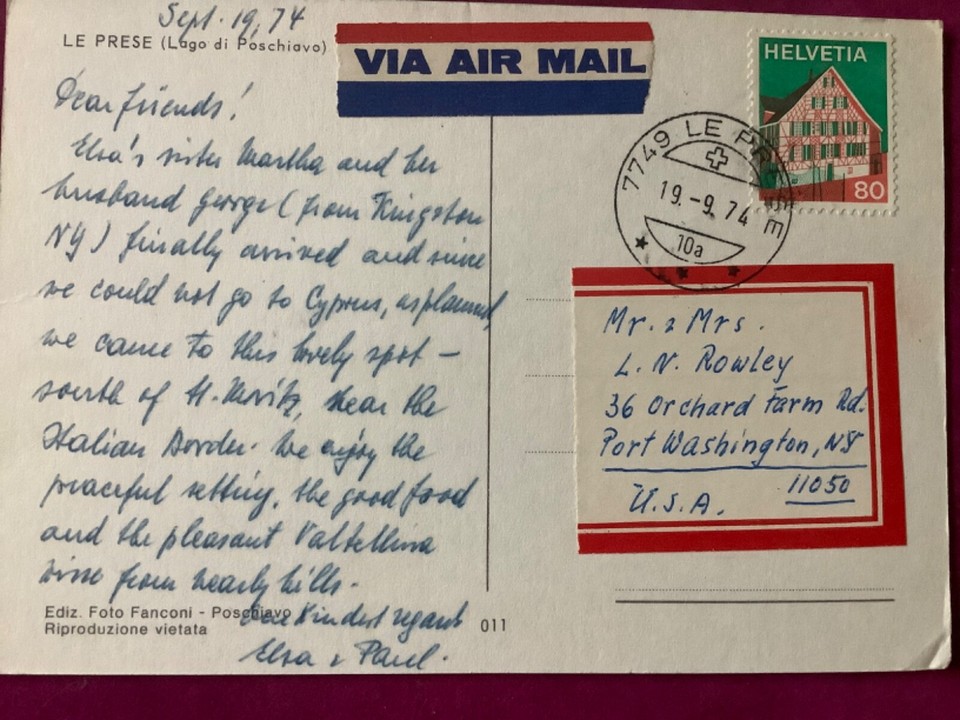 Sept. 19, 74
LE PRESE (Lago di Poschiavo)
Dear friends!
Elsa's sister Martha and her
husband George (from Kingston
NY) finally arrived and since
we could not go to Cyprus, as planned,
we came to this lovely spot –
south of St. Moritz, near the
Italian Border. We enjoy the
peaceful setting, the good food
and the pleasant Valtellina
wine from nearby hills.
Kindest regards
Elsa & Paul.
Ediz. Foto Fanconi - Poschiavo
Riproduzione vietata
011
VIA AIR MAIL
HELVETIA
80
7749 LE PRESE
19.-9.74
10a
Mr. & Mrs.
L. N. Rowley
36 Orchard Farm Rd.
Port Washington, NY
11050
U.S.A.